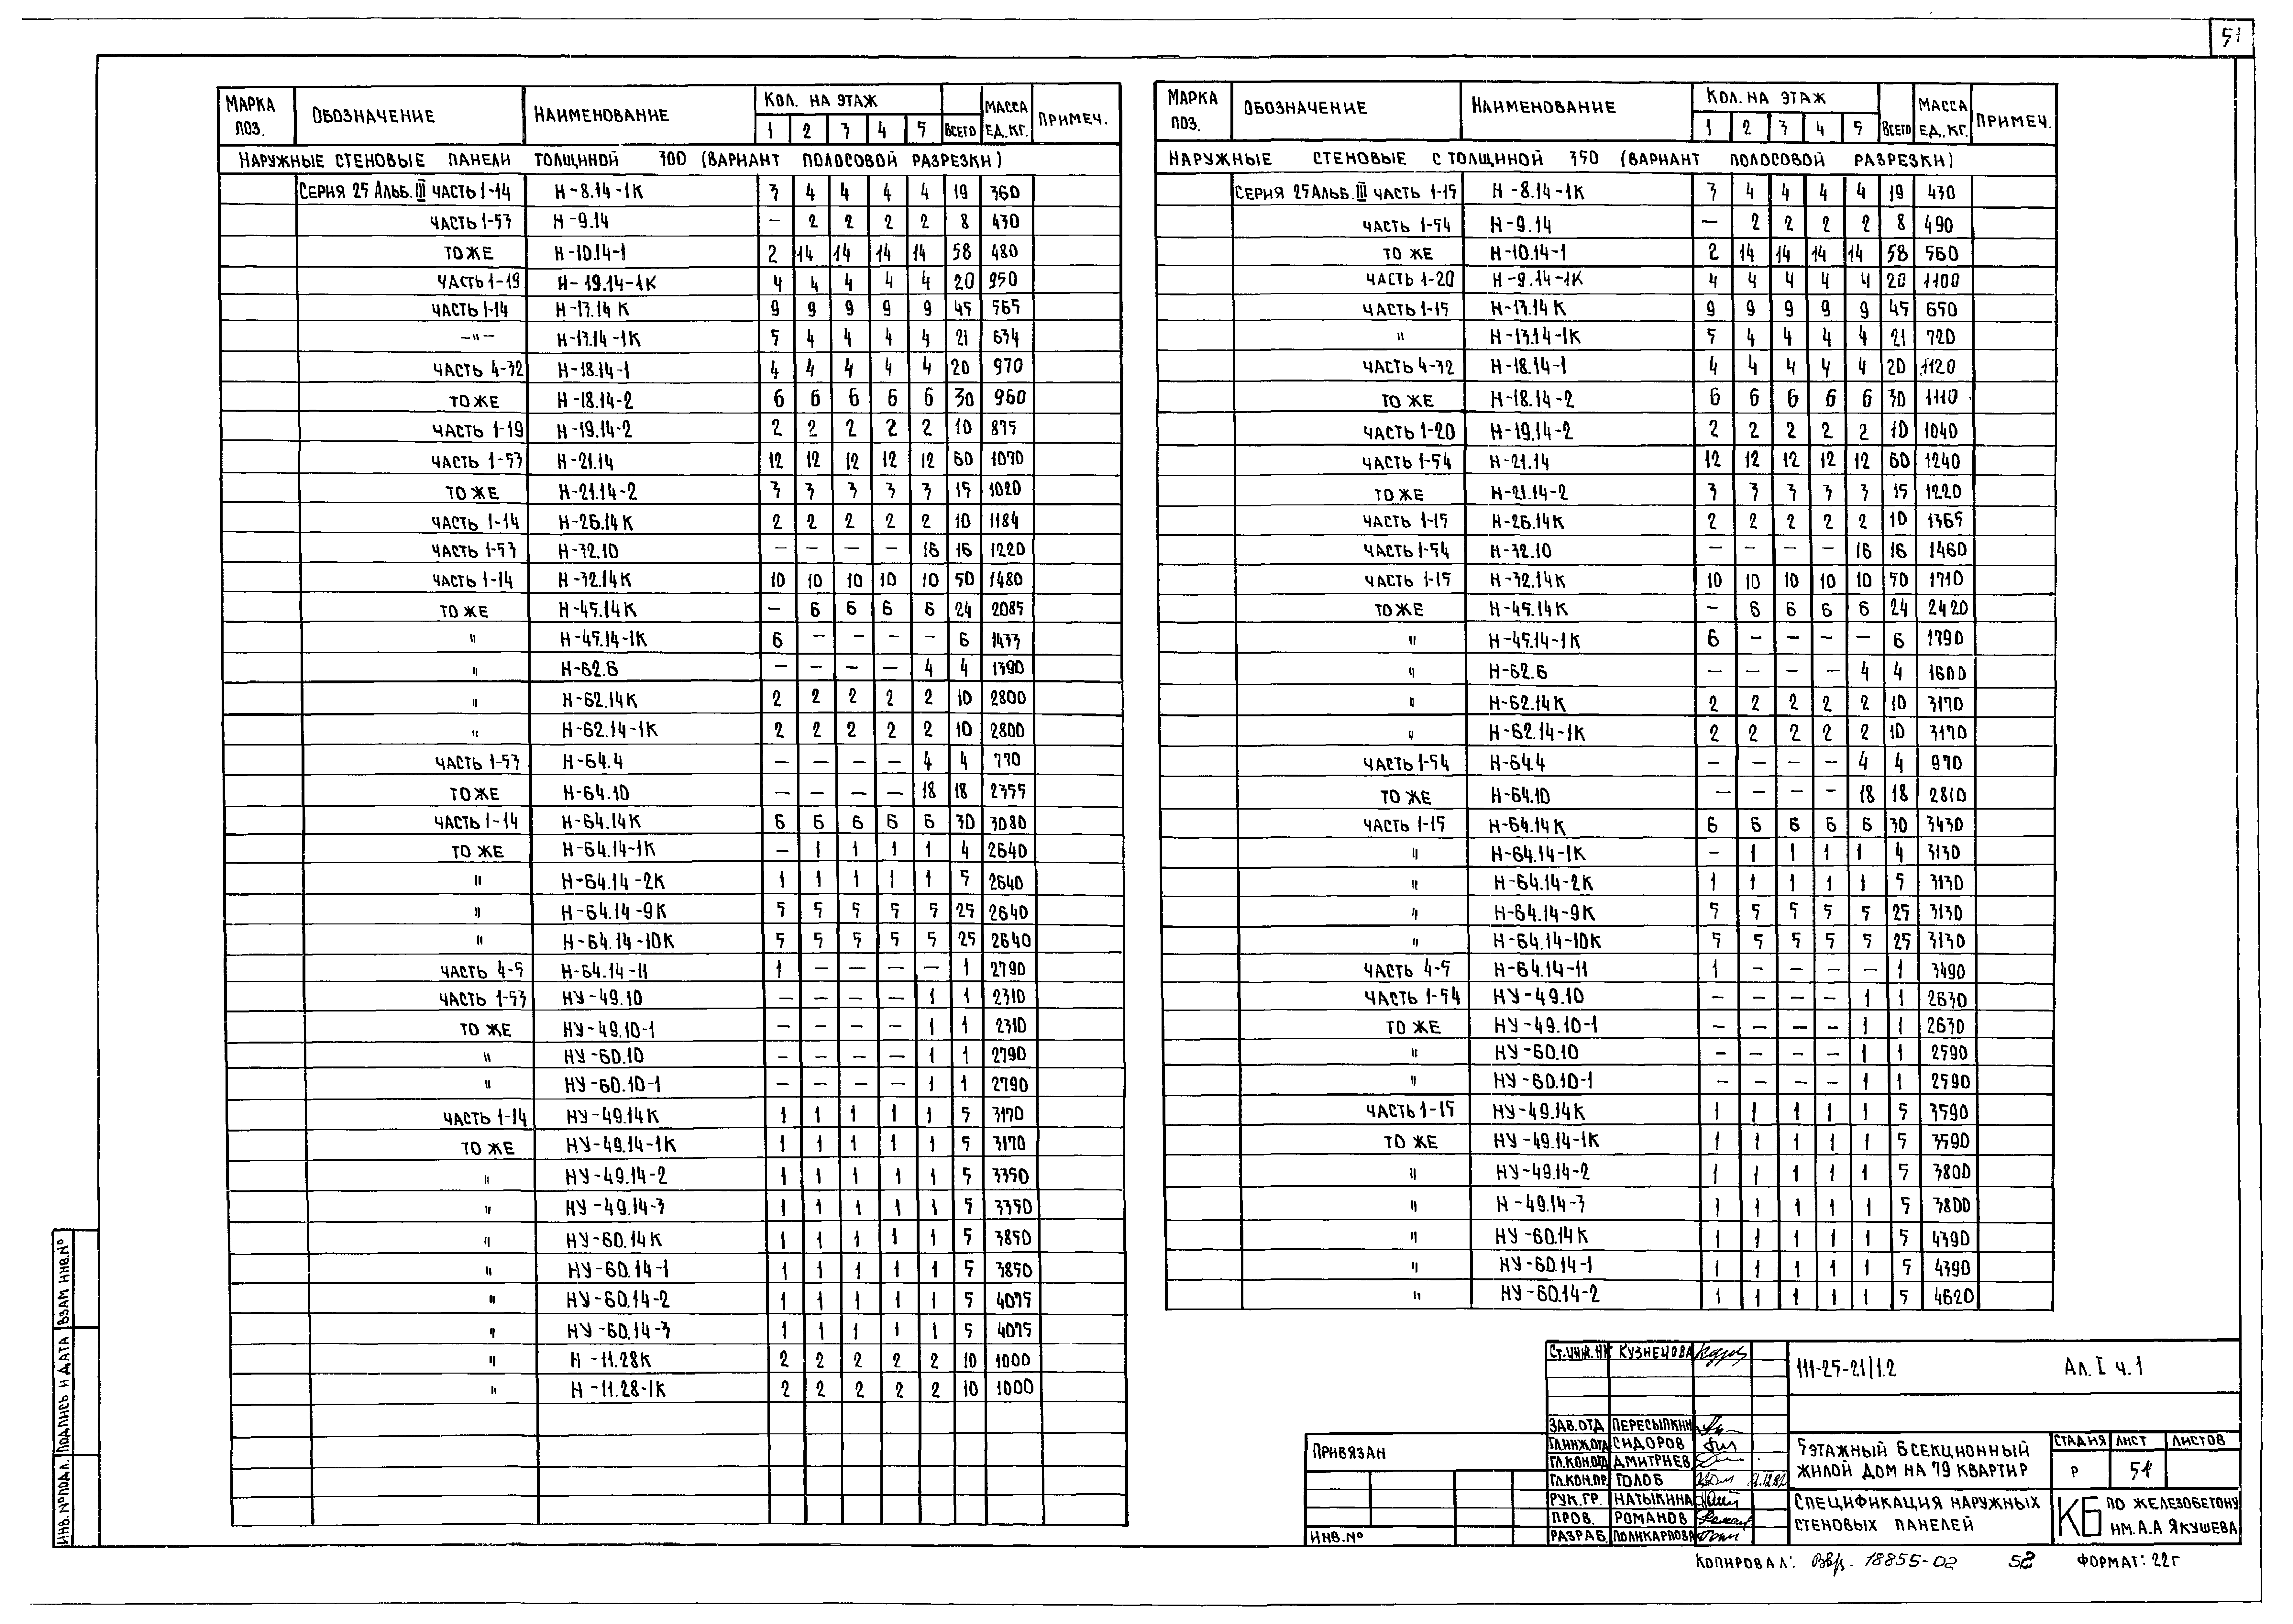 51
МАРКА ПОЗ. ОБОЗНАЧЕНИЕ НАИМЕНОВАНИЕ КОЛ. НА ЭТАЖ 1 2 3 4 5 ВСЕГО МАССА ЕД.КГ. ПРИМЕЧ.
НАРУЖНЫЕ СТЕНОВЫЕ ПАНЕЛИ ТОЛЩИНОЙ 300 (ВАРИАНТ ПОЛОСОВОЙ РАЗРЕЗКИ)
СЕРИЯ 25 АЛЬБ. III ЧАСТЬ 1-14 Н-8.14-1К 3 4 4 4 4 19 360
ЧАСТЬ 1-53 Н-9.14 – 2 2 2 2 8 430
ТО ЖЕ Н-10.14-1 2 14 14 14 14 58 480
ЧАСТЬ 1-19 Н-19.14-1К 4 4 4 4 4 20 950
ЧАСТЬ 1-14 Н-13.14 К 9 9 9 9 9 45 565
–"– Н-13.14-1К 5 4 4 4 4 21 634
ЧАСТЬ 4-32 Н-18.14-1 4 4 4 4 4 20 970
ТО ЖЕ Н-18.14-2 6 6 6 6 6 30 960
ЧАСТЬ 1-19 Н-19.14-2 2 2 2 2 2 10 875
ЧАСТЬ 1-53 Н-21.14 12 12 12 12 12 60 1070
ТО ЖЕ Н-21.14-2 3 3 3 3 3 15 1020
ЧАСТЬ 1-14 Н-26.14К 2 2 2 2 2 10 1184
ЧАСТЬ 1-53 Н-32.10 – – – – 16 16 1220
ЧАСТЬ 1-14 Н-32.14К 10 10 10 10 10 50 1480
ТО ЖЕ Н-45.14К – 6 6 6 6 24 2085
" Н-45.14-1К 6 – – – – 6 1433
" Н-62.6 – – – – 4 4 1390
" Н-62.14К 2 2 2 2 2 10 2800
" Н-62.14-1К 2 2 2 2 2 10 2800
ЧАСТЬ 1-53 Н-64.4 – – – – 4 4 770
ТО ЖЕ Н-64.10 – – – – 18 18 2355
ЧАСТЬ 1-14 Н-64.14К 6 6 6 6 6 30 3080
ТО ЖЕ Н-64.14-1К – 1 1 1 1 4 2640
" Н-64.14-2К 1 1 1 1 1 5 2640
" Н-64.14-9К 5 5 5 5 5 25 2640
" Н-64.14-10К 5 5 5 5 5 25 2640
ЧАСТЬ 4-5 Н-64.14-11 1 – – – – 1 2790
ЧАСТЬ 1-53 НУ-49.10 – – – – 1 1 2310
ТО ЖЕ НУ-49.10-1 – – – – 1 1 2310
" НУ-60.10 – – – – 1 1 2790
" НУ-60.10-1 – – – – 1 1 2790
ЧАСТЬ 1-14 НУ-49.14К 1 1 1 1 1 5 3170
ТО ЖЕ НУ-49.14-1К 1 1 1 1 1 5 3170
" НУ-49.14-2 1 1 1 1 1 5 3350
" НУ-49.14-3 1 1 1 1 1 5 3350
" НУ-60.14К 1 1 1 1 1 5 3850
" НУ-60.14-1 1 1 1 1 1 5 3850
" НУ-60.14-2 1 1 1 1 1 5 4075
" НУ-60.14-3 1 1 1 1 1 5 4075
" Н-11.28К 2 2 2 2 2 10 1000
" Н-11.28-1К 2 2 2 2 2 10 1000
МАРКА ПОЗ. ОБОЗНАЧЕНИЕ НАИМЕНОВАНИЕ КОЛ. НА ЭТАЖ 1 2 3 4 5 ВСЕГО МАССА ЕД.КГ. ПРИМЕЧ.
НАРУЖНЫЕ СТЕНОВЫЕ С ТОЛЩИНОЙ 350 (ВАРИАНТ ПОЛОСОВОЙ РАЗРЕЗКИ)
СЕРИЯ 25 АЛЬБ. III ЧАСТЬ 1-15 Н-8.14-1К 3 4 4 4 4 19 430
ЧАСТЬ 1-54 Н-9.14 – 2 2 2 2 8 490
ТО ЖЕ Н-10.14-1 2 14 14 14 14 58 560
ЧАСТЬ 1-20 Н-9.14-1К 4 4 4 4 4 20 1100
ЧАСТЬ 1-15 Н-13.14К 9 9 9 9 9 45 650
" Н-13.14-1К 5 4 4 4 4 21 720
ЧАСТЬ 4-32 Н-18.14-1 4 4 4 4 4 20 1120
ТО ЖЕ Н-18.14-2 6 6 6 6 6 30 1110
ЧАСТЬ 1-20 Н-19.14-2 2 2 2 2 2 10 1040
ЧАСТЬ 1-54 Н-21.14 12 12 12 12 12 60 1240
ТО ЖЕ Н-21.14-2 3 3 3 3 3 15 1220
ЧАСТЬ 1-15 Н-26.14К 2 2 2 2 2 10 1365
ЧАСТЬ 1-54 Н-32.10 – – – – 16 16 1460
ЧАСТЬ 1-15 Н-32.14К 10 10 10 10 10 50 1710
ТО ЖЕ Н-45.14К – 6 6 6 6 24 2420
" Н-45.14-1К 6 – – – – 6 1790
" Н-62.6 – – – – 4 4 1600
" Н-62.14К 2 2 2 2 2 10 3170
" Н-62.14-1К 2 2 2 2 2 10 3170
ЧАСТЬ 1-54 Н-64.4 – – – – 4 4 970
ТО ЖЕ Н-64.10 – – – – 18 18 2810
ЧАСТЬ 1-15 Н-64.14К 6 6 6 6 6 30 3430
" Н-64.14-1К – 1 1 1 1 4 3130
" Н-64.14-2К 1 1 1 1 1 5 3130
" Н-64.14-9К 5 5 5 5 5 25 3130
" Н-64.14-10К 5 5 5 5 5 25 3130
ЧАСТЬ 4-5 Н-64.14-11 1 – – – – 1 3490
ЧАСТЬ 1-54 НУ-49.10 – – – – 1 1 2630
ТО ЖЕ НУ-49.10-1 – – – – 1 1 2630
" НУ-60.10 – – – – 1 1 2590
" НУ-60.10-1 – – – – 1 1 2590
ЧАСТЬ 1-15 НУ-49.14К 1 1 1 1 1 5 3590
ТО ЖЕ НУ-49.14-1К 1 1 1 1 1 5 3590
" НУ-49.14-2 1 1 1 1 1 5 3800
" Н-49.14-3 1 1 1 1 1 5 3800
" НУ-60.14К 1 1 1 1 1 5 4390
" НУ-60.14-1 1 1 1 1 1 5 4390
" НУ-60.14-2 1 1 1 1 1 5 4620
СТ.ИНЖ. КУЗНЕЦОВА
ЗАВ.ОТД ПЕРЕСЫПКИН
ГЛ.ИНЖ.ОТД СИДОРОВ
ГЛ.КОН.ОТД ДМИТРИЕВ
ГЛ.КОН.ПР. ГОЛОБ
РУК.ГР. НАТЫКИНА
ПРОВ. РОМАНОВ
РАЗРАБ. ПОЛИКАРПОВА
111-25-21/1.2 Ал. I ч.1
5 ЭТАЖНЫЙ 6 СЕКЦИОННЫЙ
ЖИЛОЙ ДОМ НА 79 КВАРТИР
СТАДИЯ ЛИСТ ЛИСТОВ
Р 51
СПЕЦИФИКАЦИЯ НАРУЖНЫХ
СТЕНОВЫХ ПАНЕЛЕЙ
КБ ПО ЖЕЛЕЗОБЕТОНУ
ИМ. А.А ЯКУШЕВА
ПРИВЯЗАН
ИНВ.№
КОПИРОВАЛ: 18855-02 52 ФОРМАТ: 22Г
ИНВ.№ПОДЛ. ПОДПИСЬ И ДАТА ВЗАМ ИНВ.№